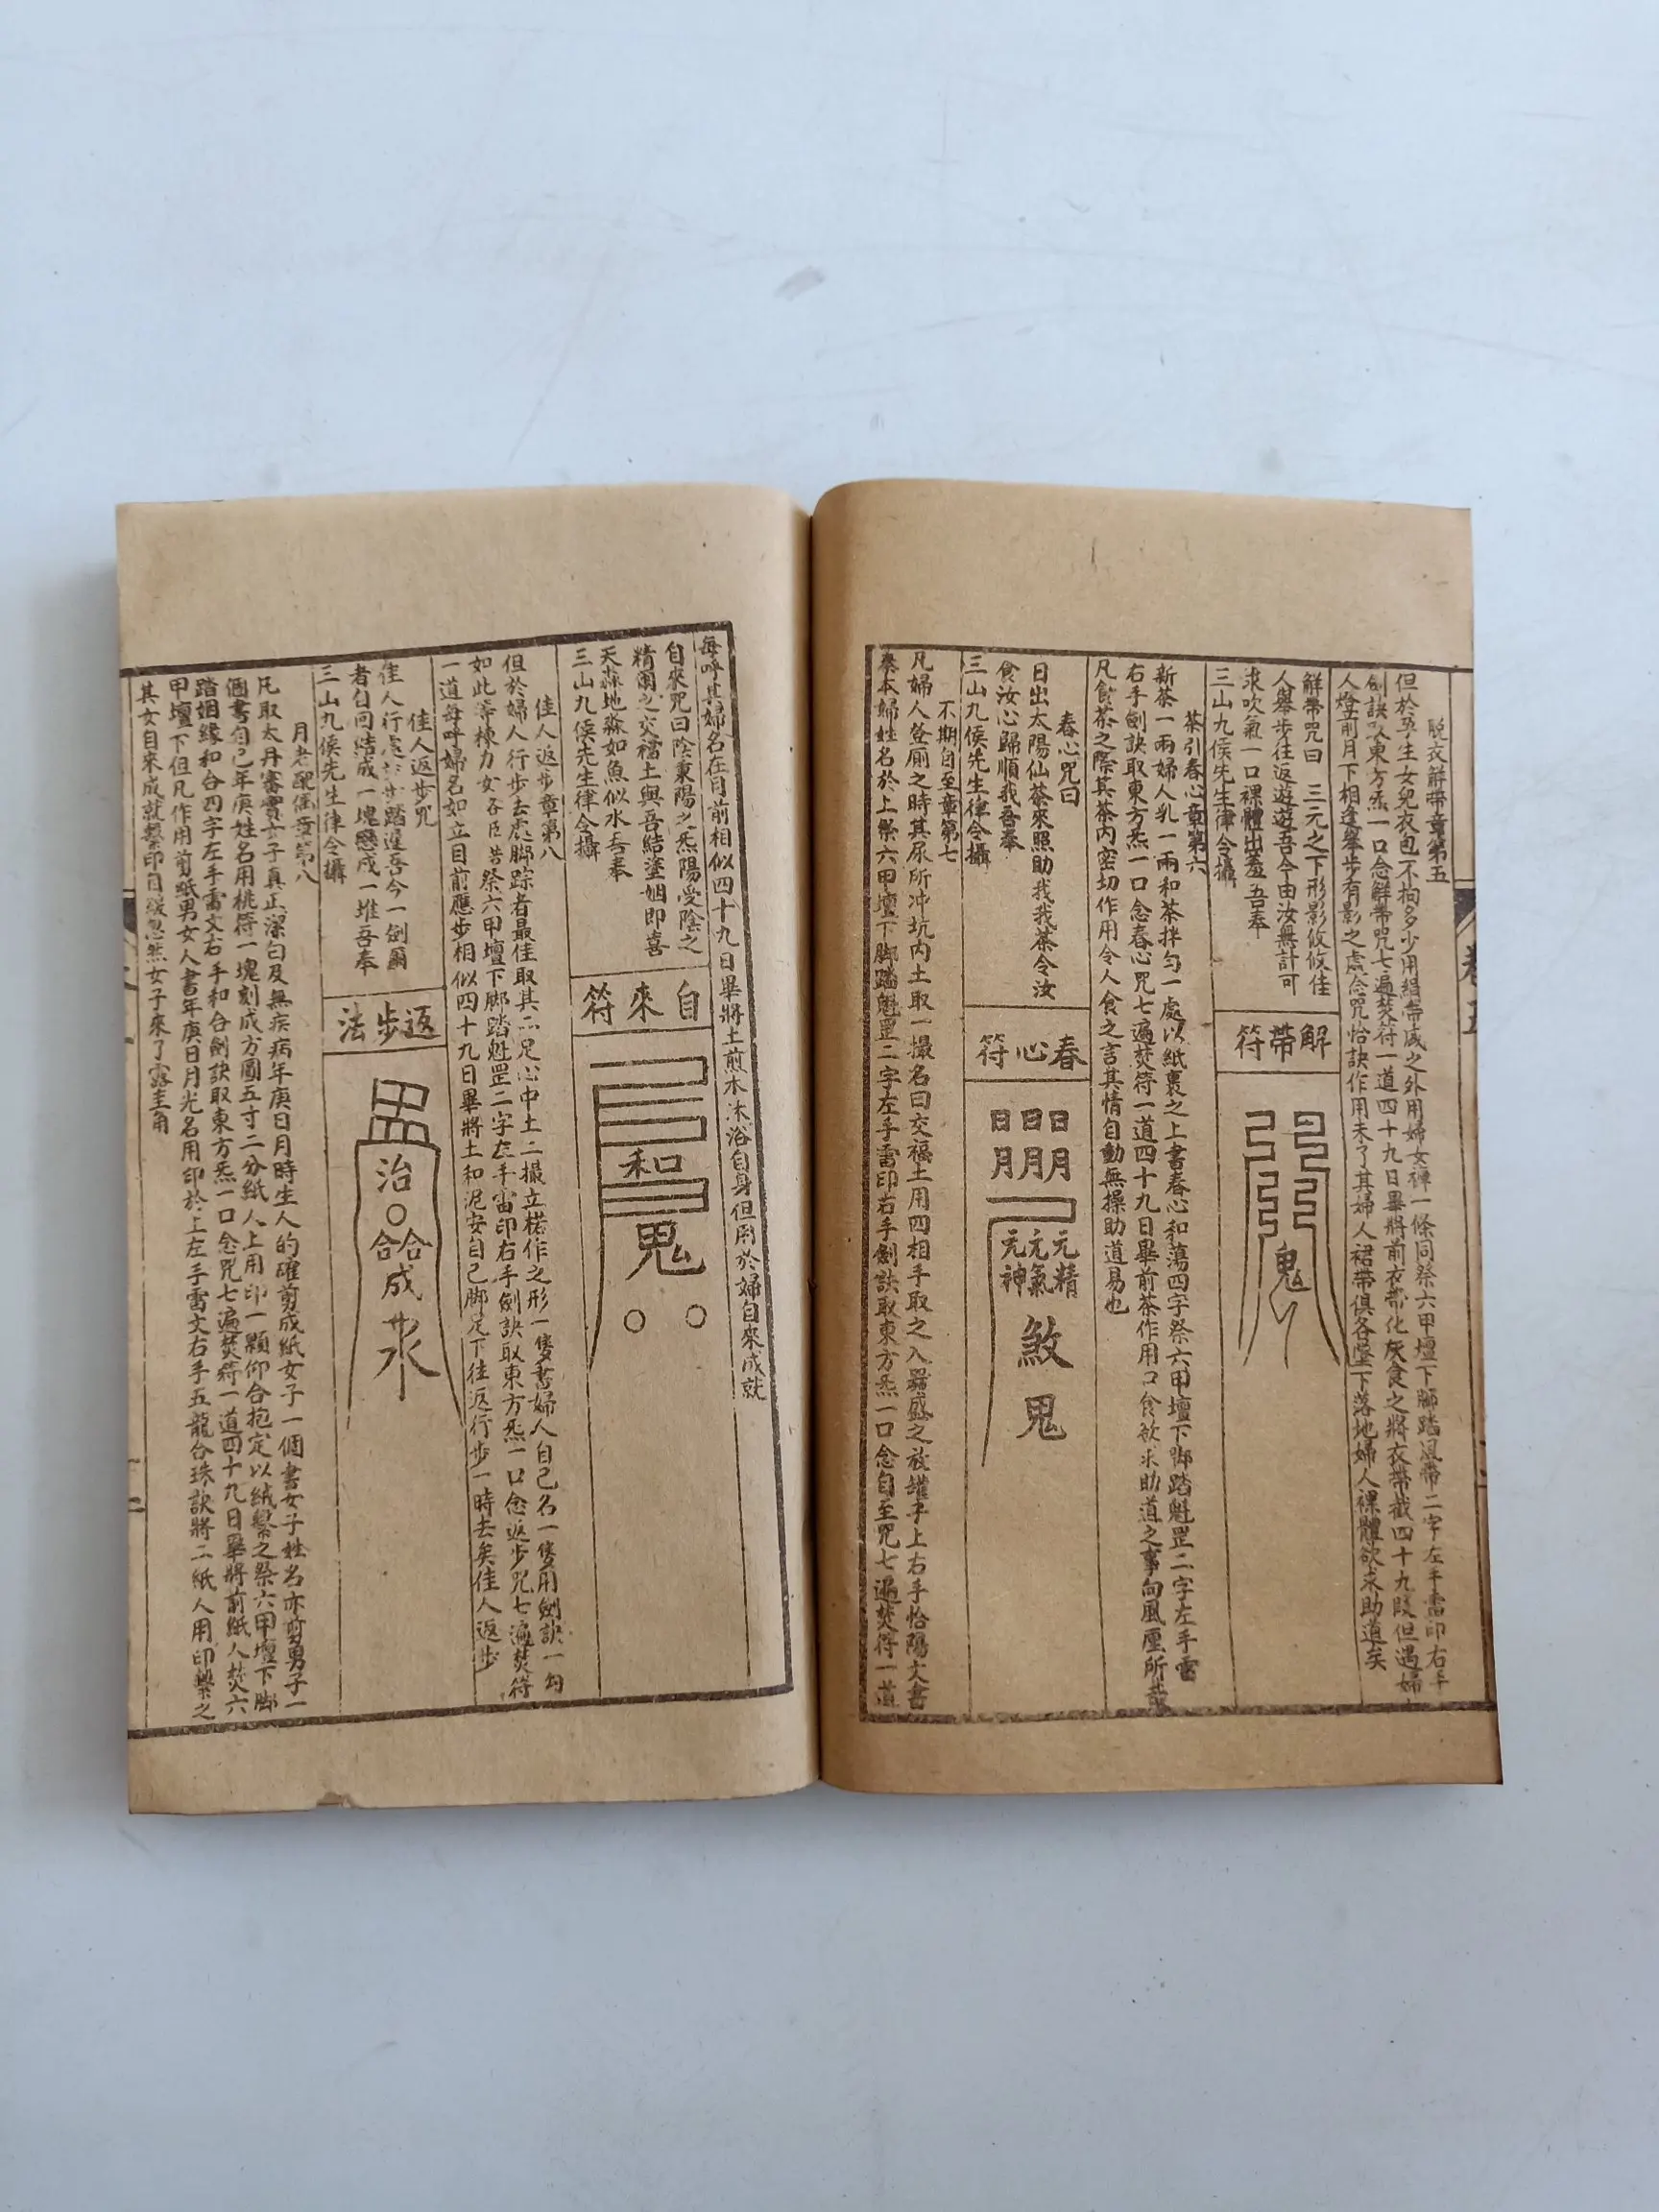 卷五
脫衣解帶章第五
但於孕生女兒衣包不拘多少用絹帶咸之外用婦女裈一條同祭六甲壇下腳踏風帶二字左手雷印右手
劍訣取東方炁一口念解帶咒七遍焚符一道四十九日畢將前衣都化灰食之將衣帶截四十九段但遇婦
人燈前月下相逢舉步有影之處念咒恰訣作用未了其婦人裙帶俱各墜下落地婦人裸體欲求助道矣
解帶咒曰 三元之下形影攸攸佳
人舉步往返遊遊吾今由汝無計可
求吹氣一口裸體出羞吾奉
三山九侯先生律令攝
解帶符
鬼
茶引春心章第六
新茶一兩婦人乳一兩和茶拌勻一處以紙裹之上書春心和蕩四字祭六甲壇下腳踏魁罡二字左手雷
右手劍訣取東方炁一口念春心咒七遍焚符一道四十九日畢前茶作用口食欲求助道之事向風
凡飲茶之際其茶內密切作用令人食之言其情自動無操助道易也
春心咒曰
日出太陽仙茶來照助我我茶令汝
食汝心歸順我吾奉
三山九侯先生律令攝
春心符
日日日日
月月月月
元精
元氣
元神
煞鬼
不期自至章第七
凡婦人登厠之時其尿所冲坑內土取一撮名曰交福土用四相手取之入器盛之放罐子上右手恰陽文書
奏本婦姓名於上祭六甲壇下腳踏魁罡二字左手雷印右手劍訣取東方炁一口念自至咒七遍焚符一道
每呼其婦名在目前相似四十九日畢將土煎水沐浴自身但用於婦自來成就
自來咒曰陰秉陽之炁陽受陰之
精團之交襠土與吾結塗姻即喜
天淼地淼如魚似水吾奉
三山九侯先生律令攝
自來符
和口
鬼
佳人返步章第八
但於婦人行步去處腳踪者最佳取其二足心中土二撮立樣作之形一隻書婦人自己名一隻用劍訣一勾
如此等棟力女各臣昔祭六甲壇下腳踏魁罡二字左手雷印右手劍訣取東方炁一口念返步咒七遍焚符
一道每呼婦名如立目前應步相似四十九日畢將土和泥安自己腳足下往返行步一時去矣佳人返步
佳人返步咒
佳人行處步踏遲吾今一劍爾
者自回結成一塊戀成一堆吾奉
三山九侯先生律令攝
返步法
治
合合
成
月老配偶章第八
凡取太丹審實女子真正潔白及無疾病年庚日月時生人的確剪成紙女子一個書女子姓名亦剪男子一
個書自己年庚姓名用桃符一塊刻成方圓五寸二分紙人上用印一顆仰合抱定以絨繫之祭六甲壇下腳
踏姻緣和合四字左手雷文右手和合劍訣取東方炁一口念咒七遍焚符一道四十九日畢將前紙人焚六
甲壇下但凡作用剪紙男女人書年庚日月光名用印於上左手雷文右手五龍合珠訣將二紙人用印繫之
其女自來成就繫印自緩忽然女子來了露圭角